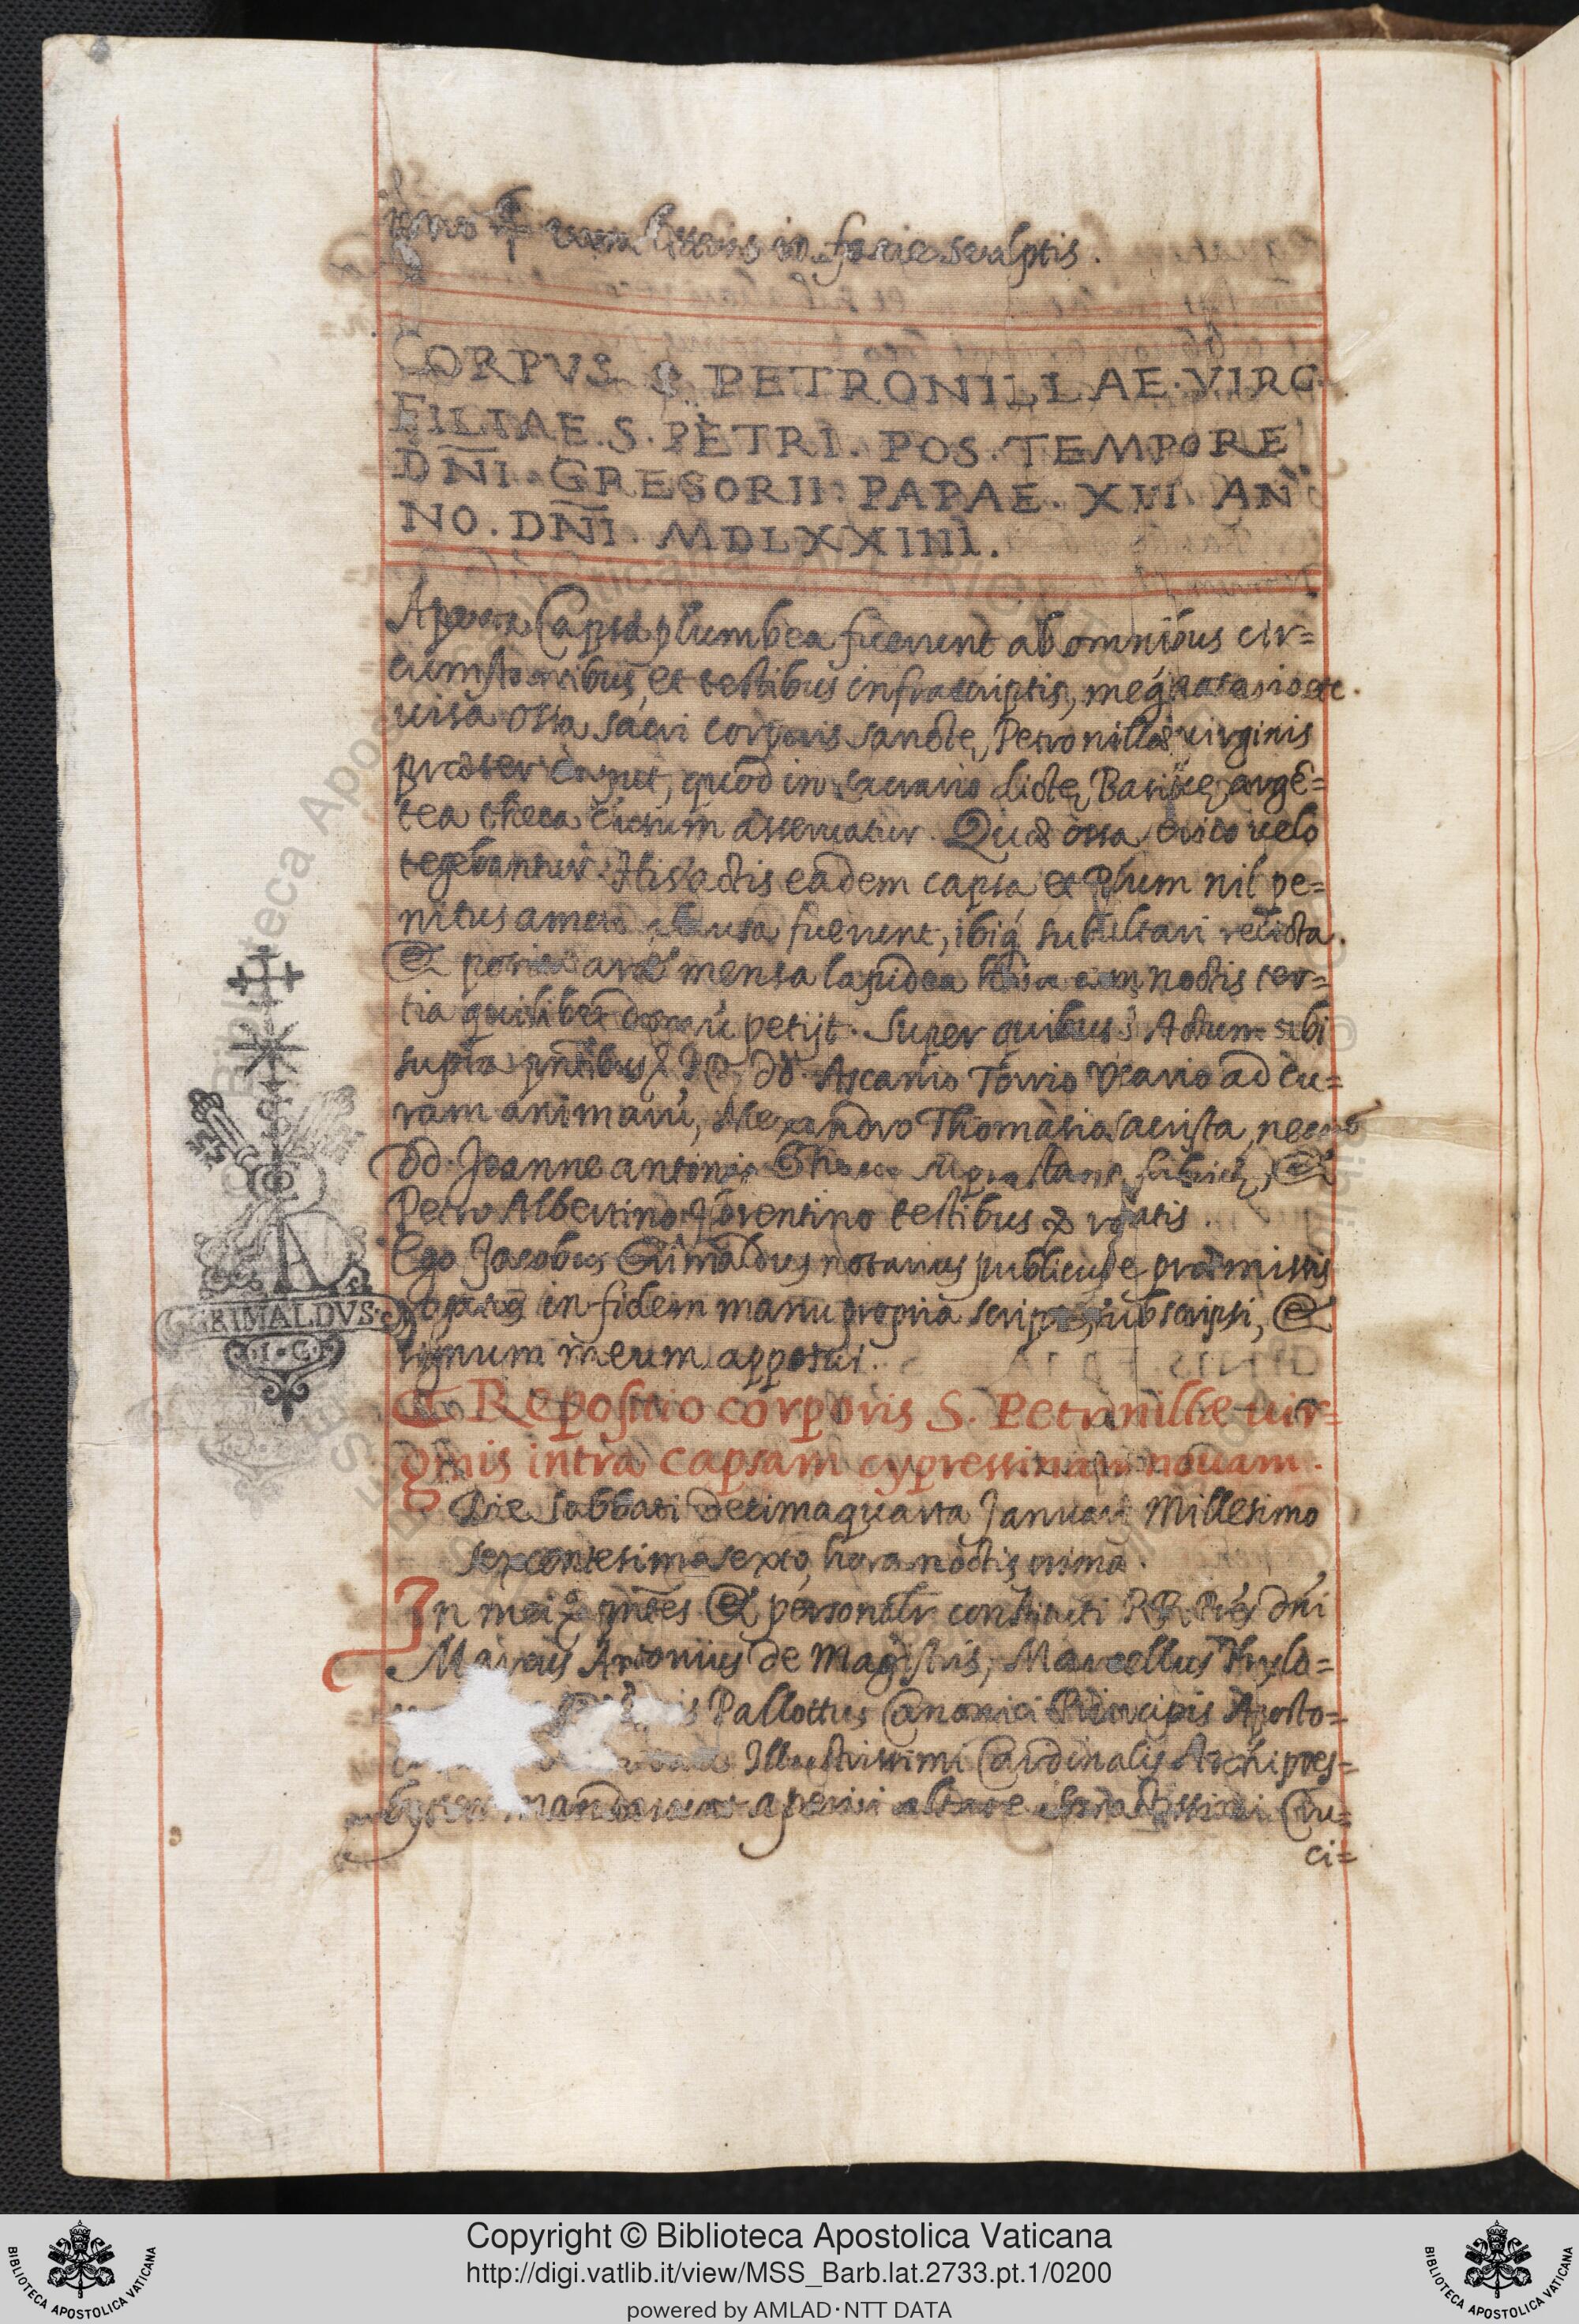 litteris in facie sculptis.
CORPVS S. PETRONILLAE. VIRG.
FILIAE. S. PETRI. POS. TEMPORE
DÑI. GREGORII. PAPAE. XIII. AN
NO. DÑI. MDLXXIIII.
Aperta Capsa plumbea fuerunt ab omnibus cir=
cumstantibus, et testibus infrascriptis, meq notario etc.
uisa ossa sacri corporis sanctę Petronillæ uirginis
præter caput, quod in sacrario dictę Basilicę argē=
tea theca asseruatur. Quæ ossa uelo
tegebantur. His actis eadem capsa et plum nil pe=
nitus amoto clausa fuerunt, ibiq sub altari relicta.
Et aræ mensa lapidea hora noctis ter=
tia quilibet domū petijt. Super quibus Actum ubi
supra pntibus RR. dd. Ascanio Torrio Vicario ad cu=
ram animarū, Alexandro Thomasio sacrista, necnō
dd. Joanne antonio
Petro Albertino florentino testibus rogatis.
Ego Jacobus Grimaldus notarius publicus de præmissis
rogatus in fidem manu propria scripsi, subscripsi, et
signum meum apposui.
GRIMALDVS
I.C.
Repositio corporis S. Petronillæ uir=
ginis intra capsam cypressinam nouam.
Die sabbati decimaquarta Januarij Millesimo
sexcentesimo sexto, hora noctis prima.
In mei pntes et personalr constituti RR. dni
Marcus Antonius de Magistris, Marcellus
Pallottus Canonici Principis Aposto=
Illustrissimi Cardinalis Archipres=
byteri mandarunt aperiri altare Cru=
ci=
Copyright © Biblioteca Apostolica Vaticana
http://digi.vatlib.it/view/MSS_Barb.lat.2733.pt.1/0200
powered by AMLAD·NTT DATA
BIBLIOTECA APOSTOLICA VATICANA
BIBLIOTECA APOSTOLICA VATICANA